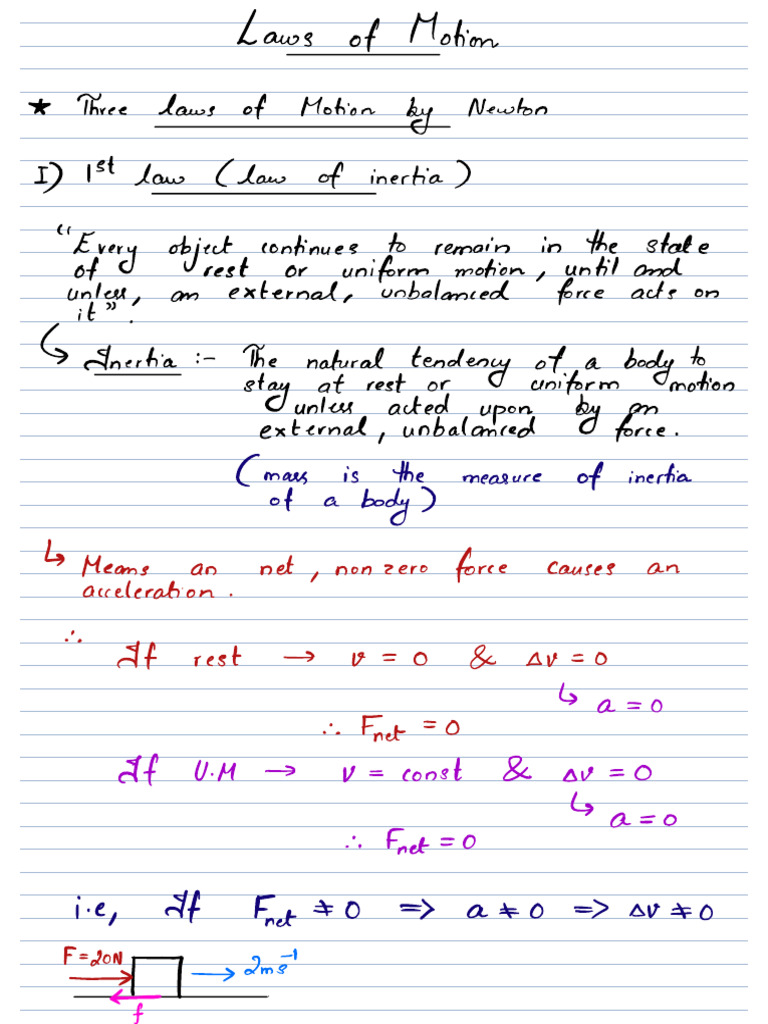 Laws of Motion
★ Three laws of Motion by Newton
I) 1st law (law of inertia)
"Every object continues to remain in the state
of rest or uniform motion, until and
unless, an external, unbalanced force acts on
it".
↳ Inertia :- The natural tendency of a body to
stay at rest or uniform motion
unless acted upon by an
external, unbalanced force.
(mass is the measure of inertia
of a body)
↳ Means an net, non zero force causes an
acceleration.
∴
If rest → v = 0 & Δv = 0
↳ a = 0
∴ Fnet = 0
If U.M → v = const & Δv = 0
↳ a = 0
∴ Fnet = 0
i.e, If Fnet ≠ 0 => a ≠ 0 => Δv ≠ 0
F = 20N → 2ms⁻¹
f